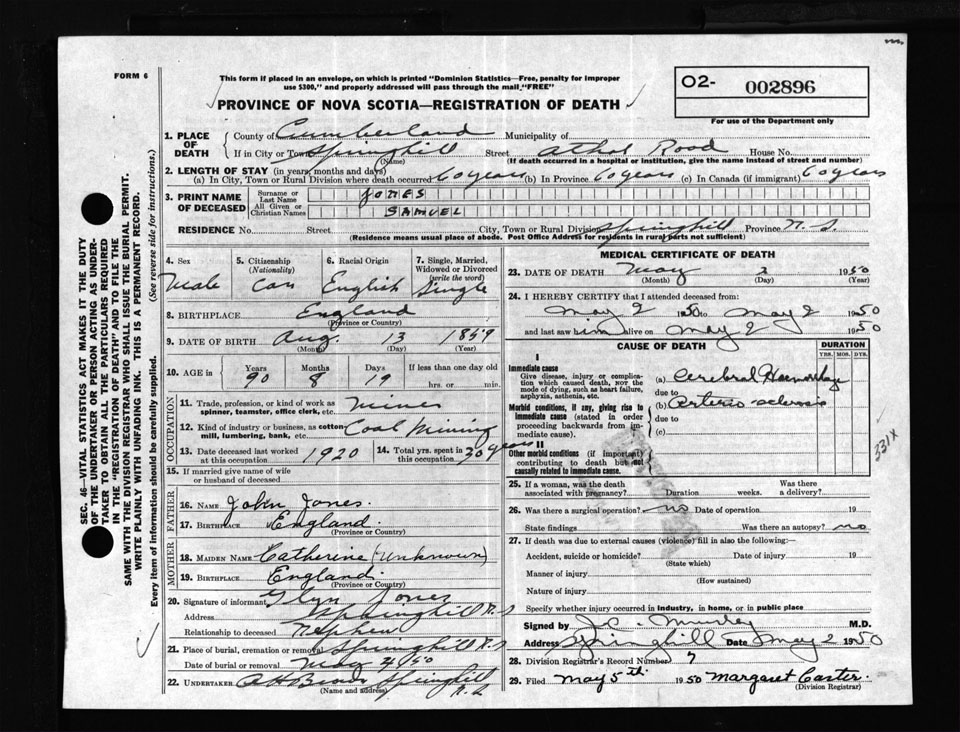 FORM 6
This form if placed in an envelope, on which is printed "Dominion Statistics—Free, penalty for improper
use $300," and properly addressed will pass through the mail "FREE"
O2- 002896
For use of the Department only
PROVINCE OF NOVA SCOTIA—REGISTRATION OF DEATH
SEC. 46—VITAL STATISTICS ACT MAKES IT THE DUTY
OF THE UNDERTAKER OR PERSON ACTING AS UNDER-
TAKER TO OBTAIN ALL THE PARTICULARS REQUIRED
IN THE "REGISTRATION OF DEATH" AND TO FILE THE
SAME WITH THE DIVISION REGISTRAR WHO SHALL ISSUE THE BURIAL PERMIT.
WRITE PLAINLY WITH UNFADING INK. THIS IS A PERMANENT RECORD.
Every item of information should be carefully supplied. (See reverse side for instructions.)
1. PLACE OF DEATH County of Cumberland Municipality of
If in City or Town Springhill Street Athol Road House No.
(Name) (If death occurred in a hospital or institution, give the name instead of street and number)
2. LENGTH OF STAY (in years, months and days)
(a) In City, Town or Rural Division where death occurred 60 years (b) In Province 60 years (c) In Canada (if immigrant) 60 years
3. PRINT NAME OF DECEASED Surname or Last Name JONES
All Given or Christian Names SAMUEL
RESIDENCE No. Street City, Town or Rural Division Springhill Province N. S.
(Residence means usual place of abode. Post Office Address for residents in rural parts not sufficient)
4. Sex Male
5. Citizenship (Nationality) Can
6. Racial Origin English
7. Single, Married, Widowed or Divorced (write the word) Single
8. BIRTHPLACE England
(Province or Country)
9. DATE OF BIRTH Aug. 13 1859
(Month) (Day) (Year)
10. AGE in Years 90 Months 8 Days 19 If less than one day old hrs. or min.
OCCUPATION
11. Trade, profession, or kind of work as spinner, teamster, office clerk, etc. Miner
12. Kind of industry or business, as cotton mill, lumbering, bank, etc. Coal Mining
13. Date deceased last worked at this occupation 1920
14. Total yrs. spent in this occupation 30 years
15. If married give name of wife or husband of deceased
FATHER
16. Name John Jones
17. Birthplace England
(Province or Country)
MOTHER
18. Maiden Name Catherine (Unknown)
19. Birthplace England
(Province or Country)
20. Signature of informant Glyn Jones
Address Springhill N.S
Relationship to deceased Nephew
21. Place of burial, cremation or removal Springhill N.S
Date of burial or removal May 4 1950
22. UNDERTAKER Springhill
(Name and address)
MEDICAL CERTIFICATE OF DEATH
23. DATE OF DEATH May 2 1950
(Month) (Day) (Year)
24. I HEREBY CERTIFY that I attended deceased from:
May 2 1950 to May 2 1950
and last saw him alive on May 2 1950
CAUSE OF DEATH DURATION
YRS. MOS. DYS.
I
Immediate cause
Give disease, injury or complication which caused death, not the mode of dying, such as heart failure, asphyxia, asthenia, etc.
(a) Cerebral Haemorrhage
due to
Morbid conditions, if any, giving rise to immediate cause (stated in order proceeding backwards from immediate cause).
(b) Arterio-sclerosis
due to
(c)
331X
II
Other morbid conditions (if important) contributing to death but not causally related to immediate cause.
25. If a woman, was the death associated with pregnancy? Duration weeks. Was there a delivery?
26. Was there a surgical operation? no Date of operation 19
State findings Was there an autopsy? no
27. If death was due to external causes (violence) fill in also the following:—
Accident, suicide or homicide? Date of injury 19
(State which)
Manner of injury
(How sustained)
Nature of injury
Specify whether injury occurred in industry, in home, or in public place
Signed by M.D.
Address Springhill Date May 2 1950
28. Division Registrar's Record Number 7
29. Filed May 5th 1950 Margaret Carter.
(Division Registrar)